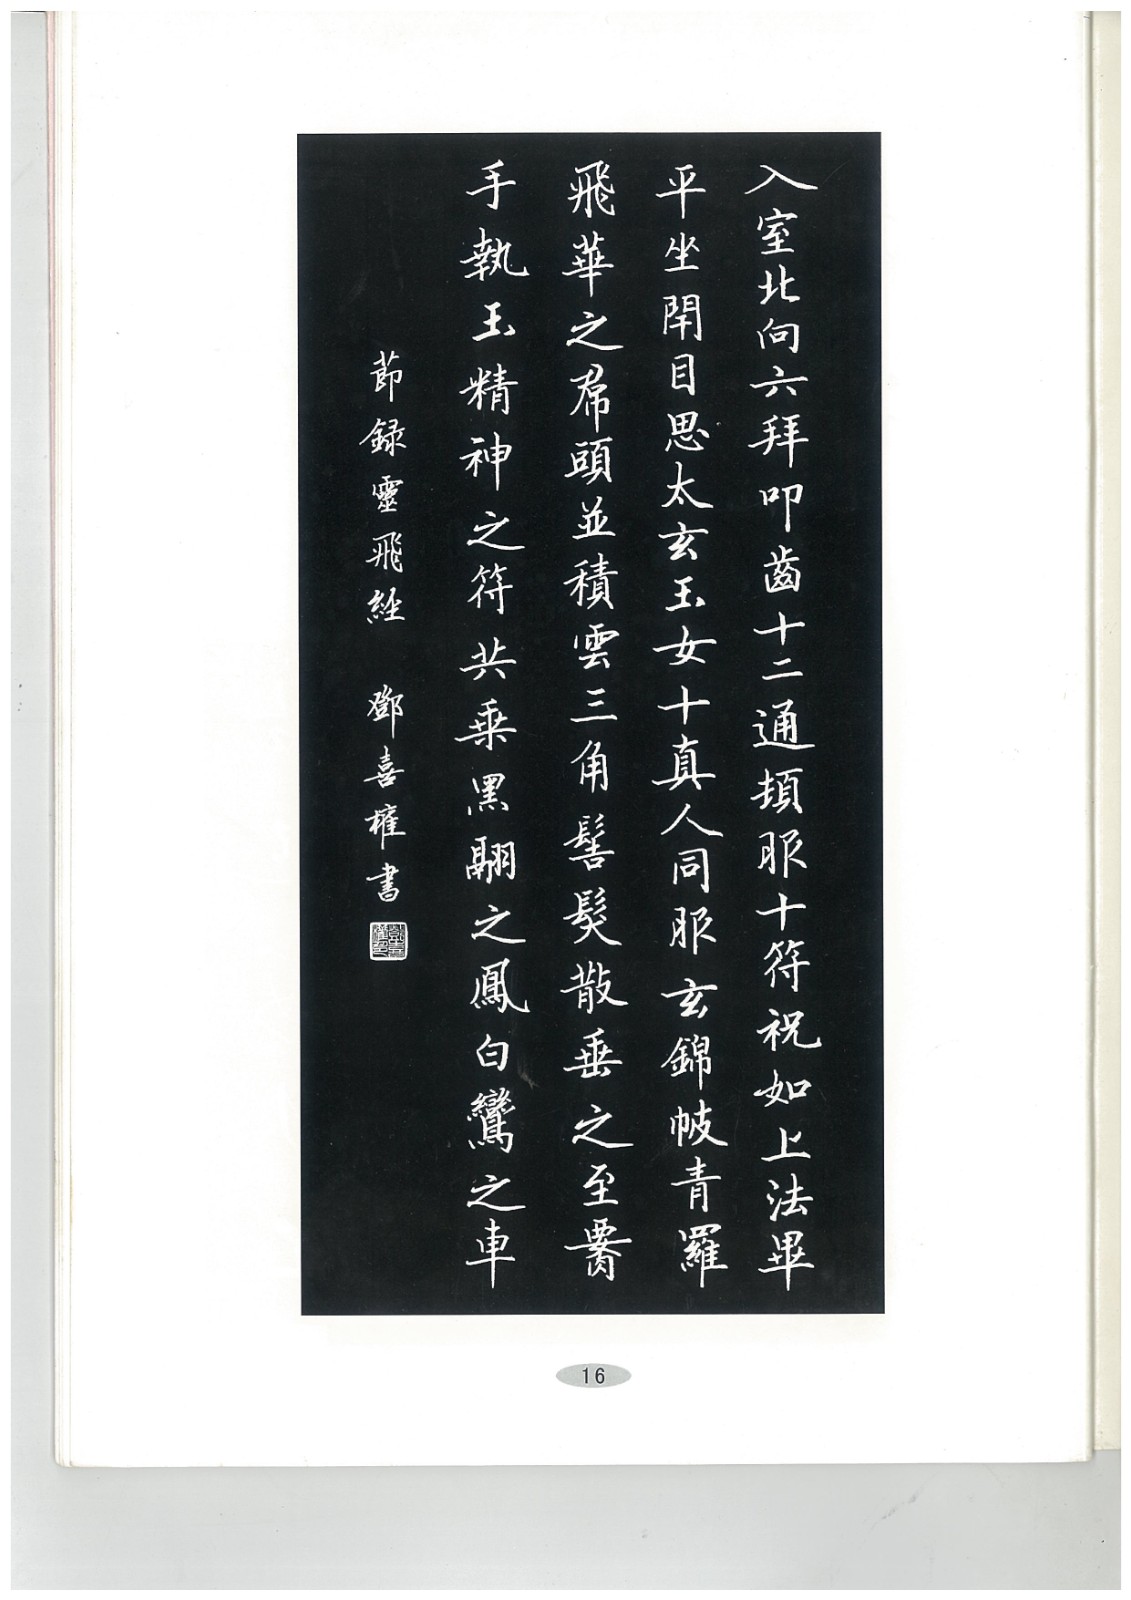 入室北向六拜叩齒十二通頓服十符祝如上法畢
平坐閇目思太玄玉女十真人同服玄錦帔青羅
飛華之帬頭並積雲三角髻髮散垂之至𦝫
手執玉精神之符共乗黑翮之鳳白鸞之車
節録靈飛經 鄧喜權書
16